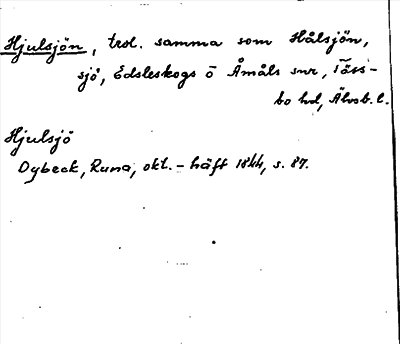 Hjulsjön, trol. samma som Hålsjön,
sjö, Edsleskogs o Åmåls snr, Töss-
bo hd, Älvsb. l.
Hjulsjö
Dybeck, Runa, okt.-häft 1844, s. 87.